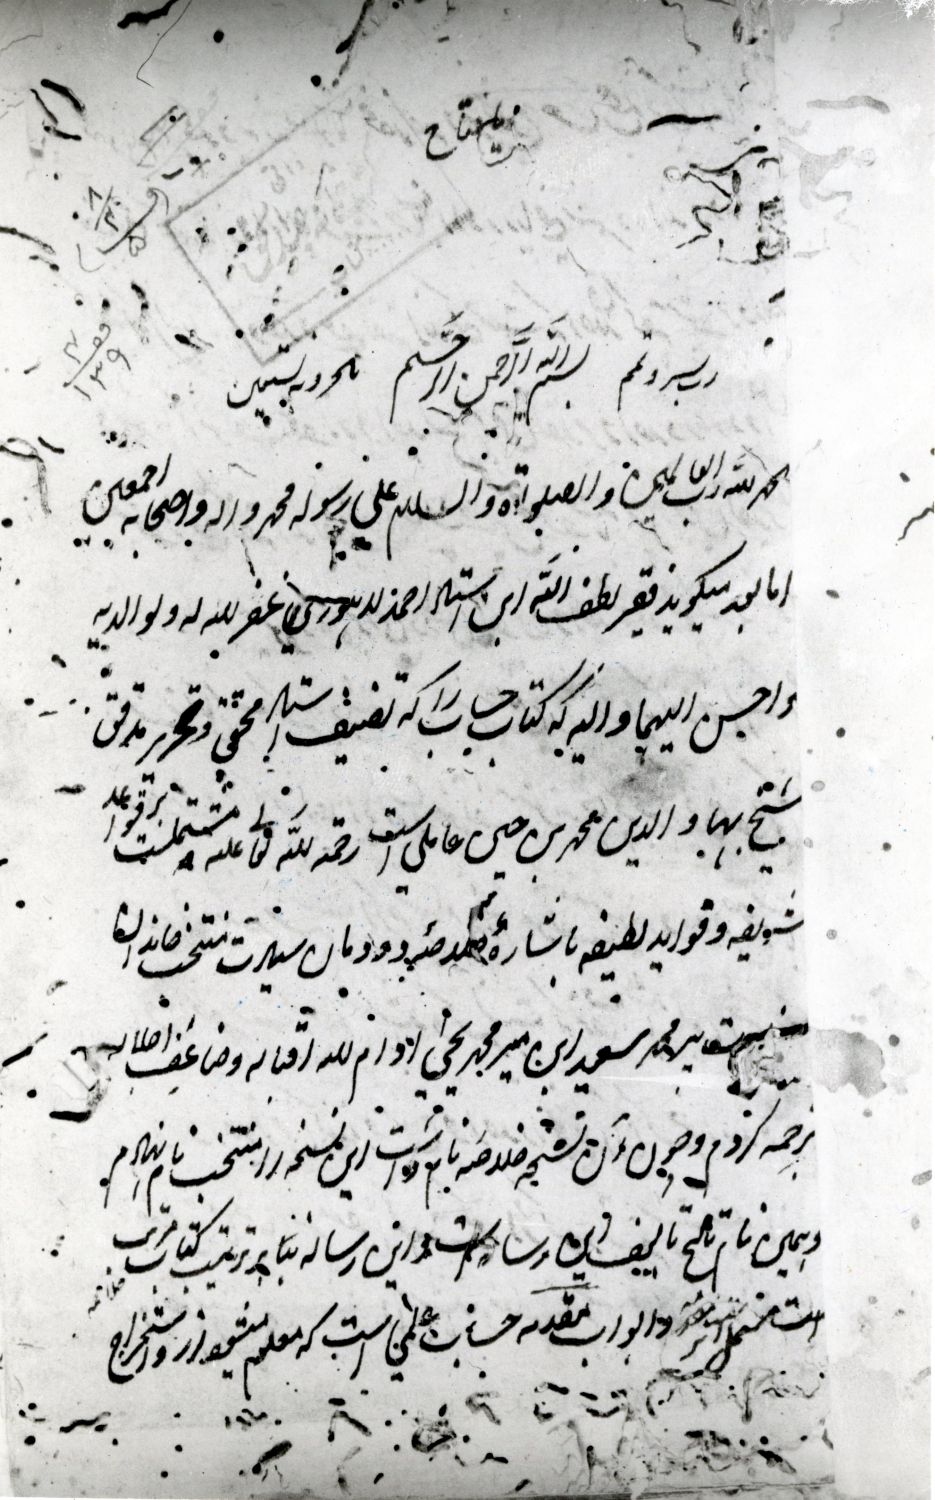 یا فتاح
رب یسر و تمم بسم الله الرحمن الرحیم و به نستعین
الحمد لله رب العالمین و الصلواة و السلام علی رسوله محمد و اله و اصحابه اجمعین
اما بعد میکوید فقیر لطف الله ابن استاد احمد لاهوری غفر الله له و لوالدیه
و احسن الیهما و الیه که کتاب حساب را که تصنیف استاد محقق و نحریر مدقق
شیخ بهاو الدین محمد بن حسین عاملی است رحمة الله تعالی علیه مشتملست بر قواعد
شریفه و فواید لطیفه باشارهٔ خلاصهٔ دودمان سیادت منتخب خاندان
میر محمد سعید ابن میر محمد یحیی ادام الله اقباله و ضاعف اجلاله
ترجمه کردم و چون آن نسخه خلاصه نام داشت این نسخه را منتخب نام نهادم
و همین نام تاریخ تالیف این رساله است و این رساله بنابر ترتیب کتاب مرتب
است مشتمل بر مقدمه و ابواب مقدمه حساب علمی است که معلوم میشود از و استخراج
خاتمه